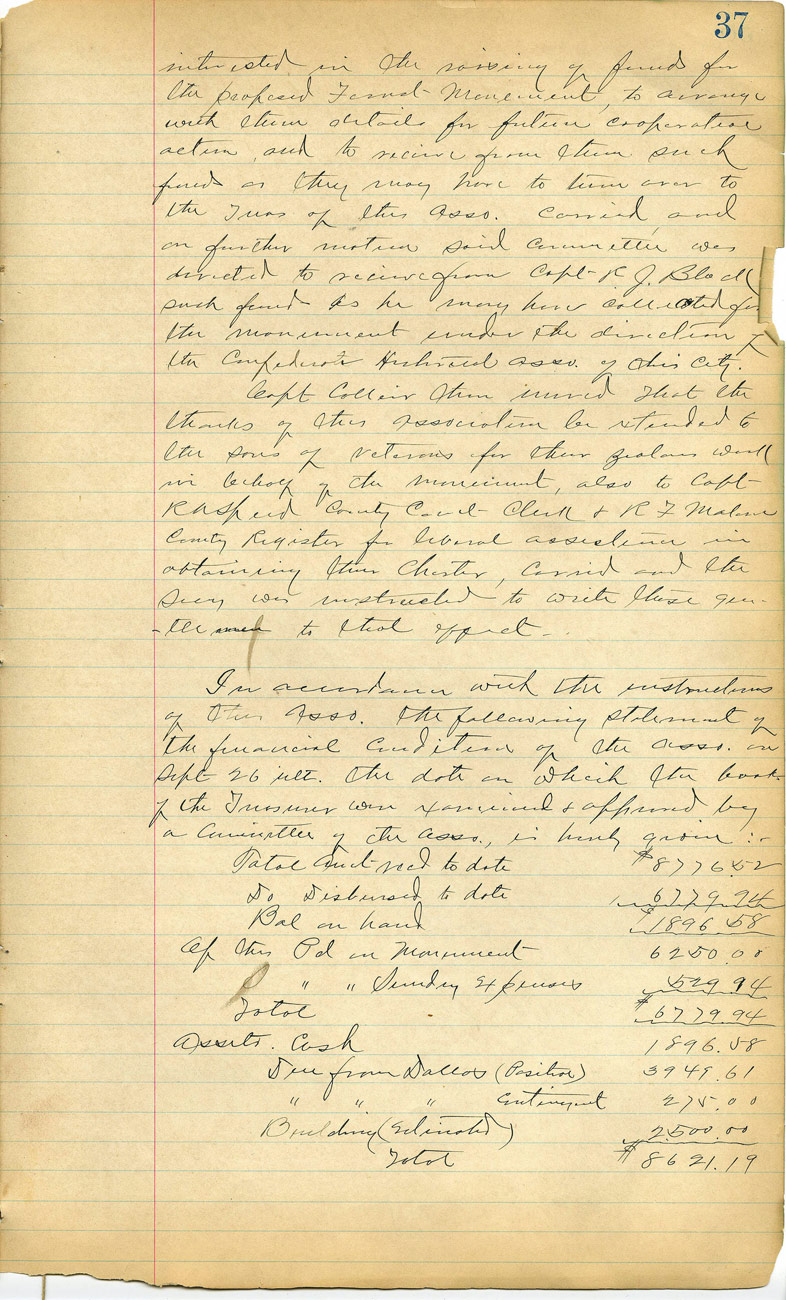 37
interested in the raising of funds for
the proposed Forrest Monument, to arrange
with them details for future cooperative
action, and to receive from them such
funds as they may have to turn over to
the Treas of this Asso. Carried, and
on further motion said Committee was
directed to receive from Capt R. J. Black
such funds as he may have collected for
the monument under the direction of
the Confederate Historical Asso. of this City.
Capt Collier then moved that the
thanks of this Association be extended to
the sons of Veterans for their zealous work
in behalf of the Monument, also to Capt
R A Speed County Court Clerk & R F Malone
County Register for liberal assistance in
obtaining their Charter, Carried and the
Secy was instructed to write these gen-
-tlemen to that effect.
In accordance with the instructions
of this Asso. the following statement of
the financial Condition of the asso. on
Sept 26 ult. the date on which the books
of the Treasurer were examined & approved by
a Committee of the asso., is hereby given :-
Total Amt recd to date $8776.52
Do Disbursed to date 6779.94
Bal on hand $1896.58
Of this Pd on Monument 6250.00
" " Sundry Expenses 529.94
Total $6779.94
Assets. Cash 1896.58
Due from Dallas (Positive) 3949.61
" " " Contingent 275.00
Building (Estimated) 2500.00
Total $8621.19